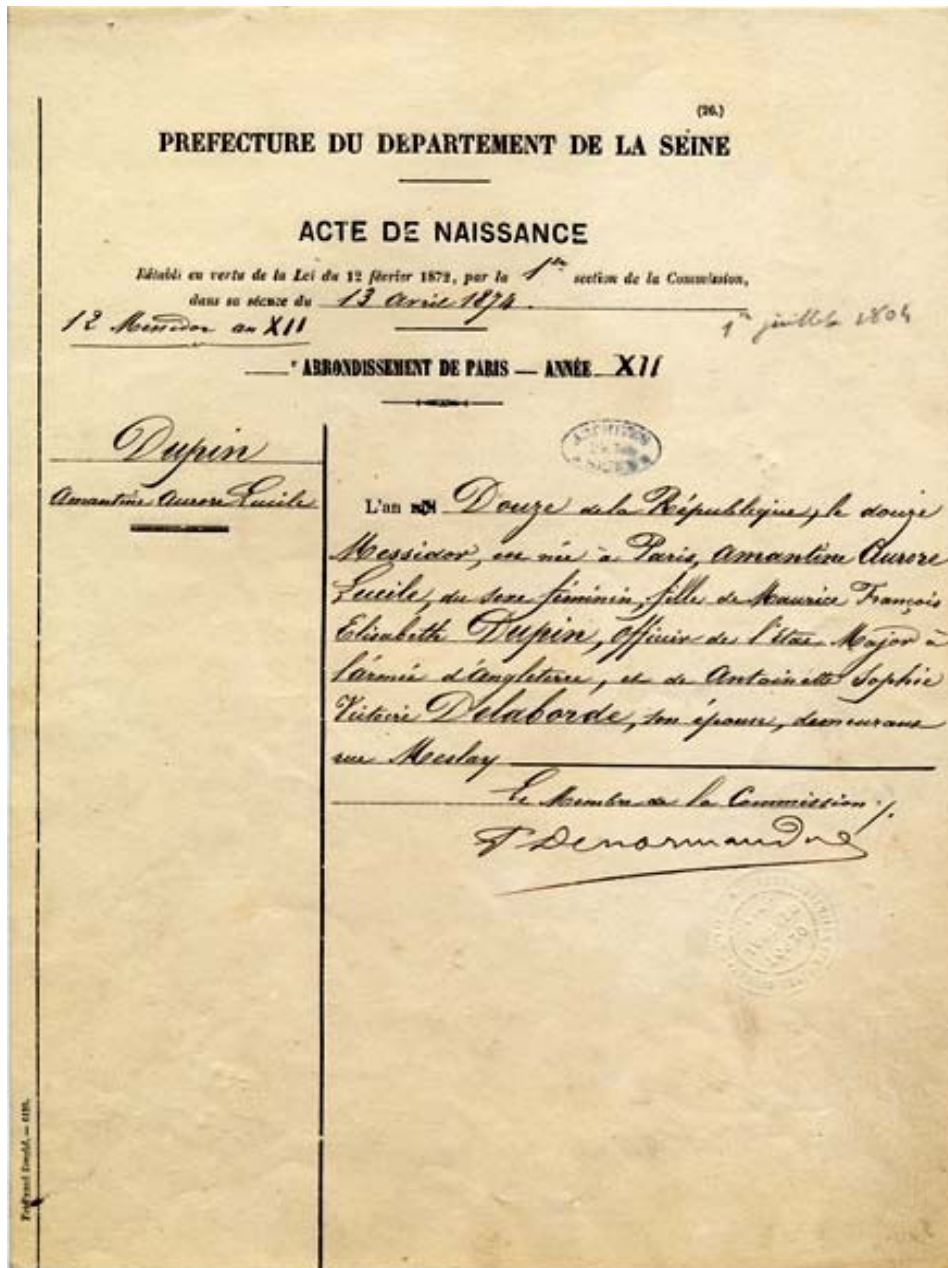 (26.)
PREFECTURE DU DEPARTEMENT DE LA SEINE
ACTE DE NAISSANCE
Rétabli en vertu de la Loi du 12 février 1872, par la 1re section de la Commission,
dans sa séance du 13 avril 1874.
12 Messidor an XII
1er juillet 1804
e ARRONDISSEMENT DE PARIS — ANNÉE XII
Dupin
Amantine Aurore Lucile
ARCHIVES
L'an Douze de la République, le douze
Messidor, est née à Paris, Amantine Aurore
Lucile, du sexe féminin, fille de Maurice François
Elisabeth Dupin, officier de l'état Major à
l'armée d'angleterre, et de Antoinette Sophie
Victoire Delaborde, son épouse, demeurant
rue Meslay
Le Membre de la Commission
Denormandie